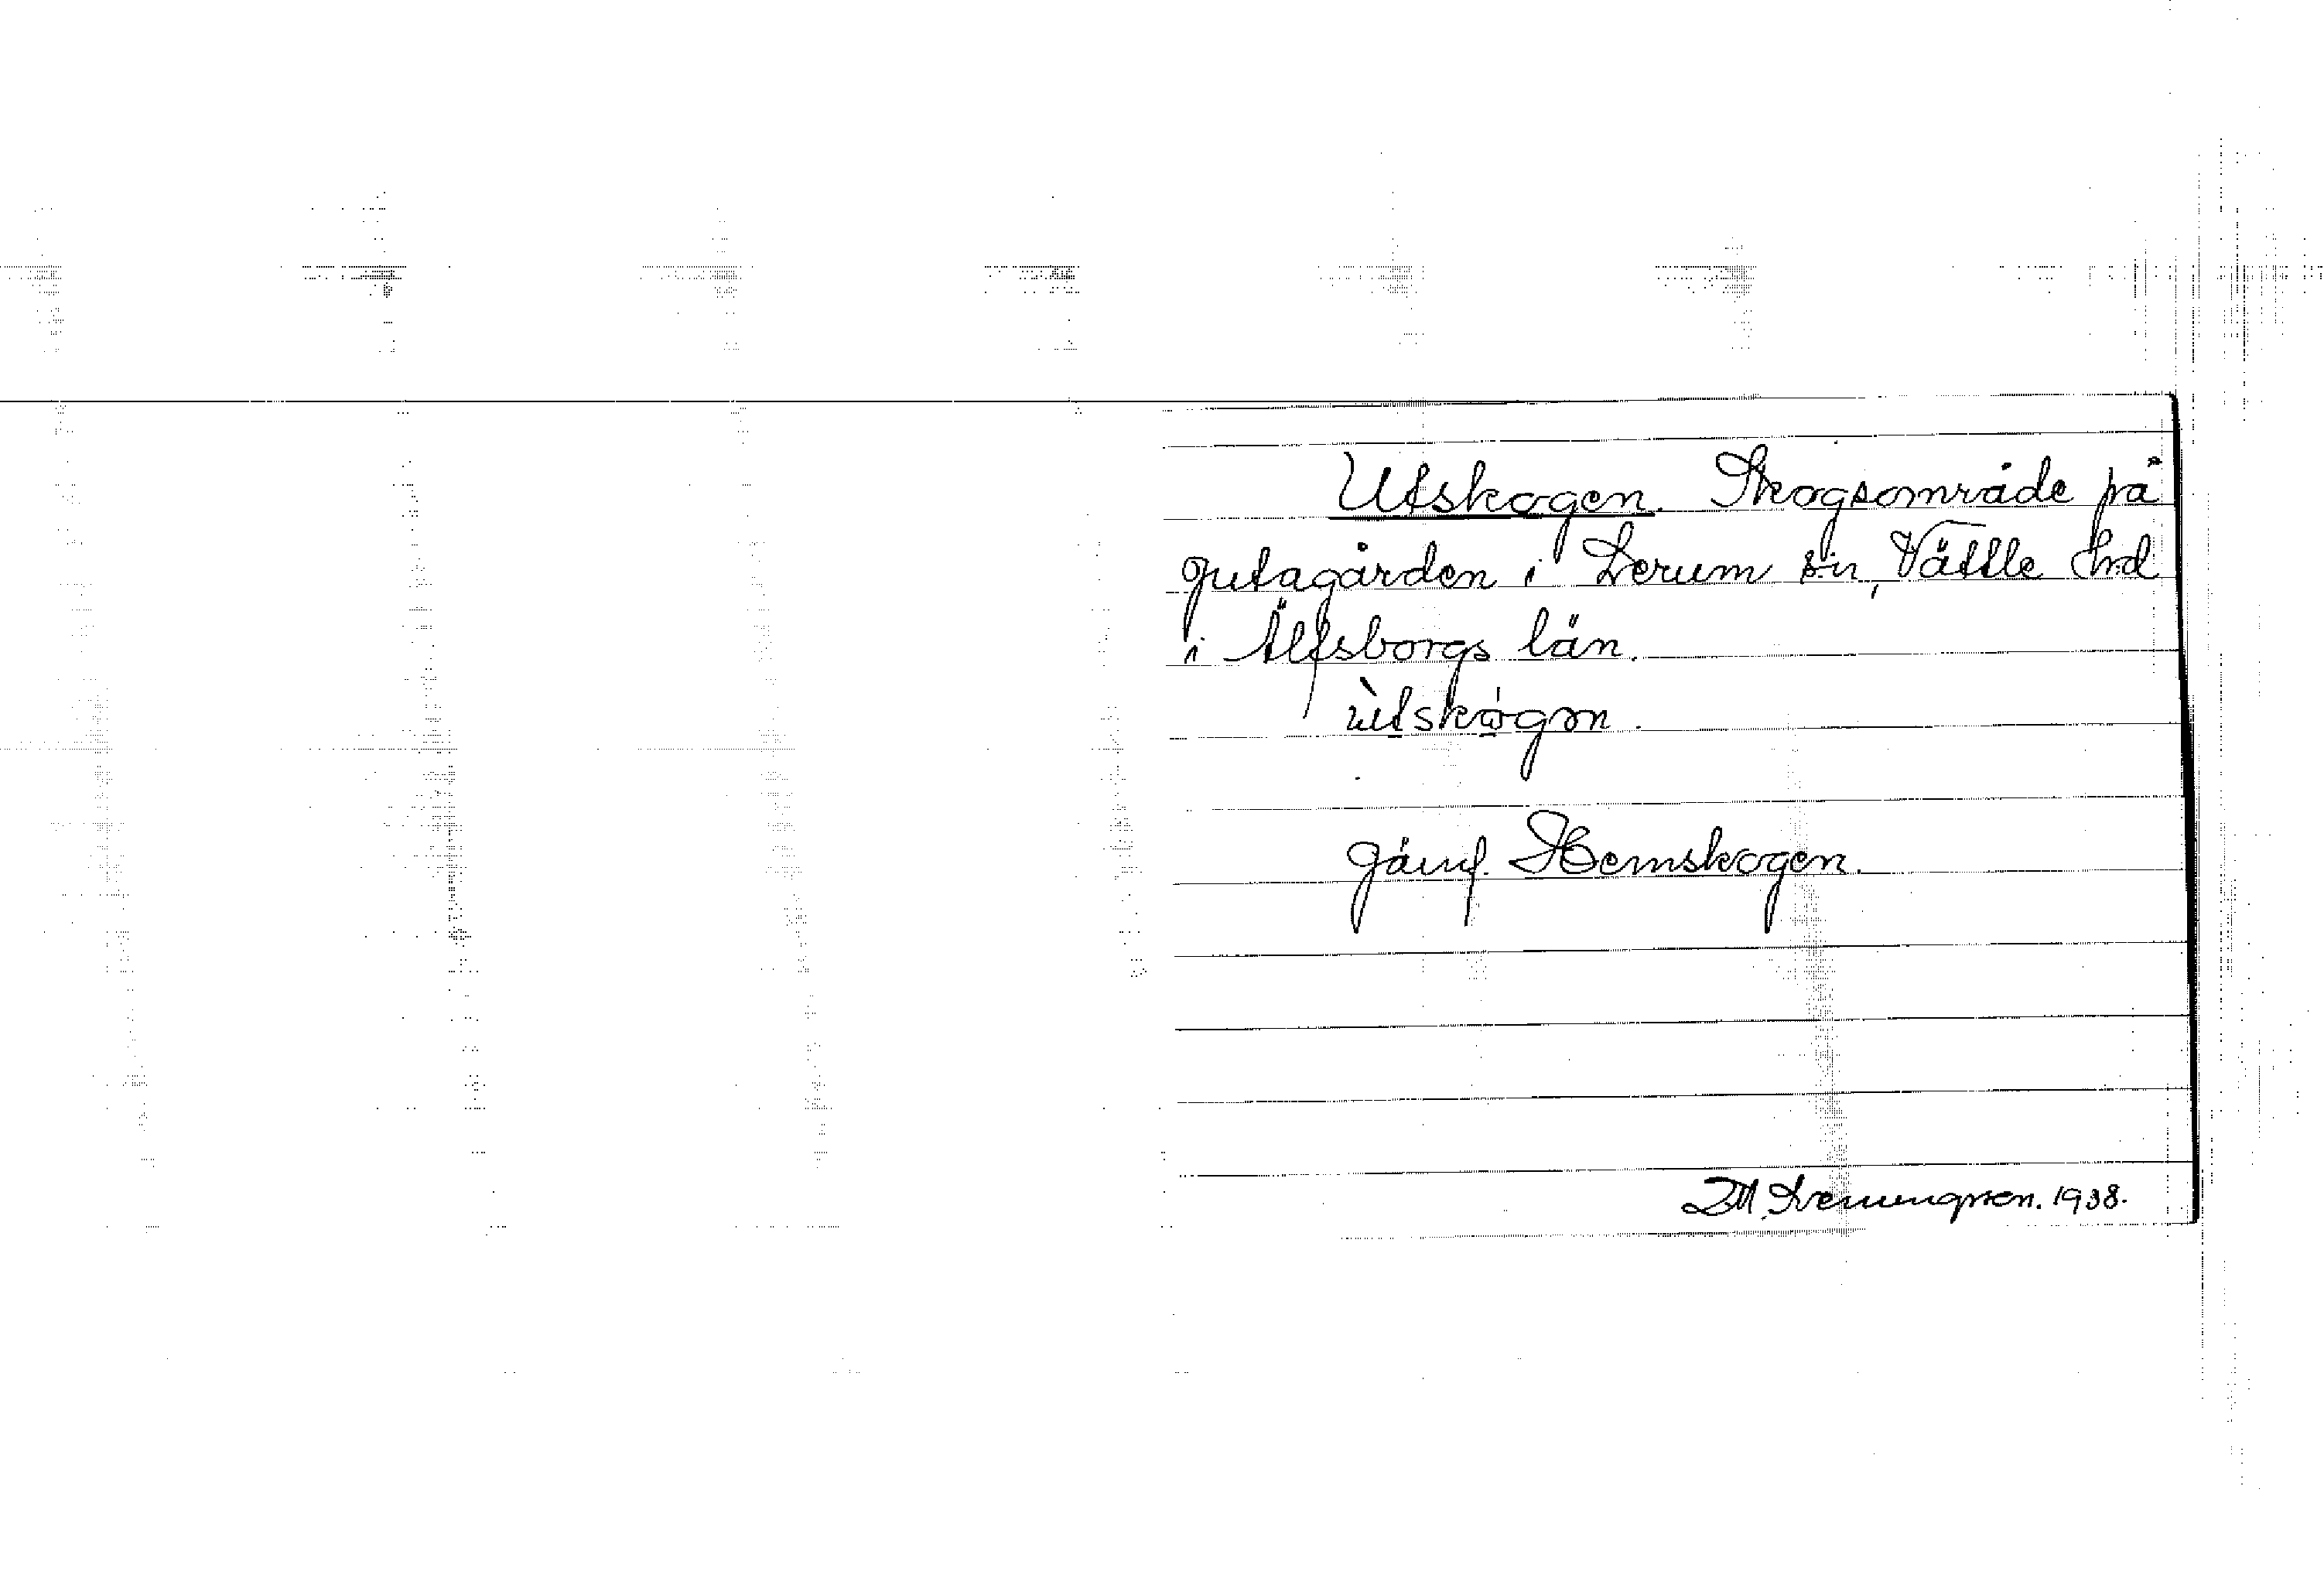 Utskogen. Skogsområde på
Jutagården i Lerum sn, Vättle hrd
i Älfsborgs län.
ùtskógɷn.
Jämf. Hemskogen.
1938.